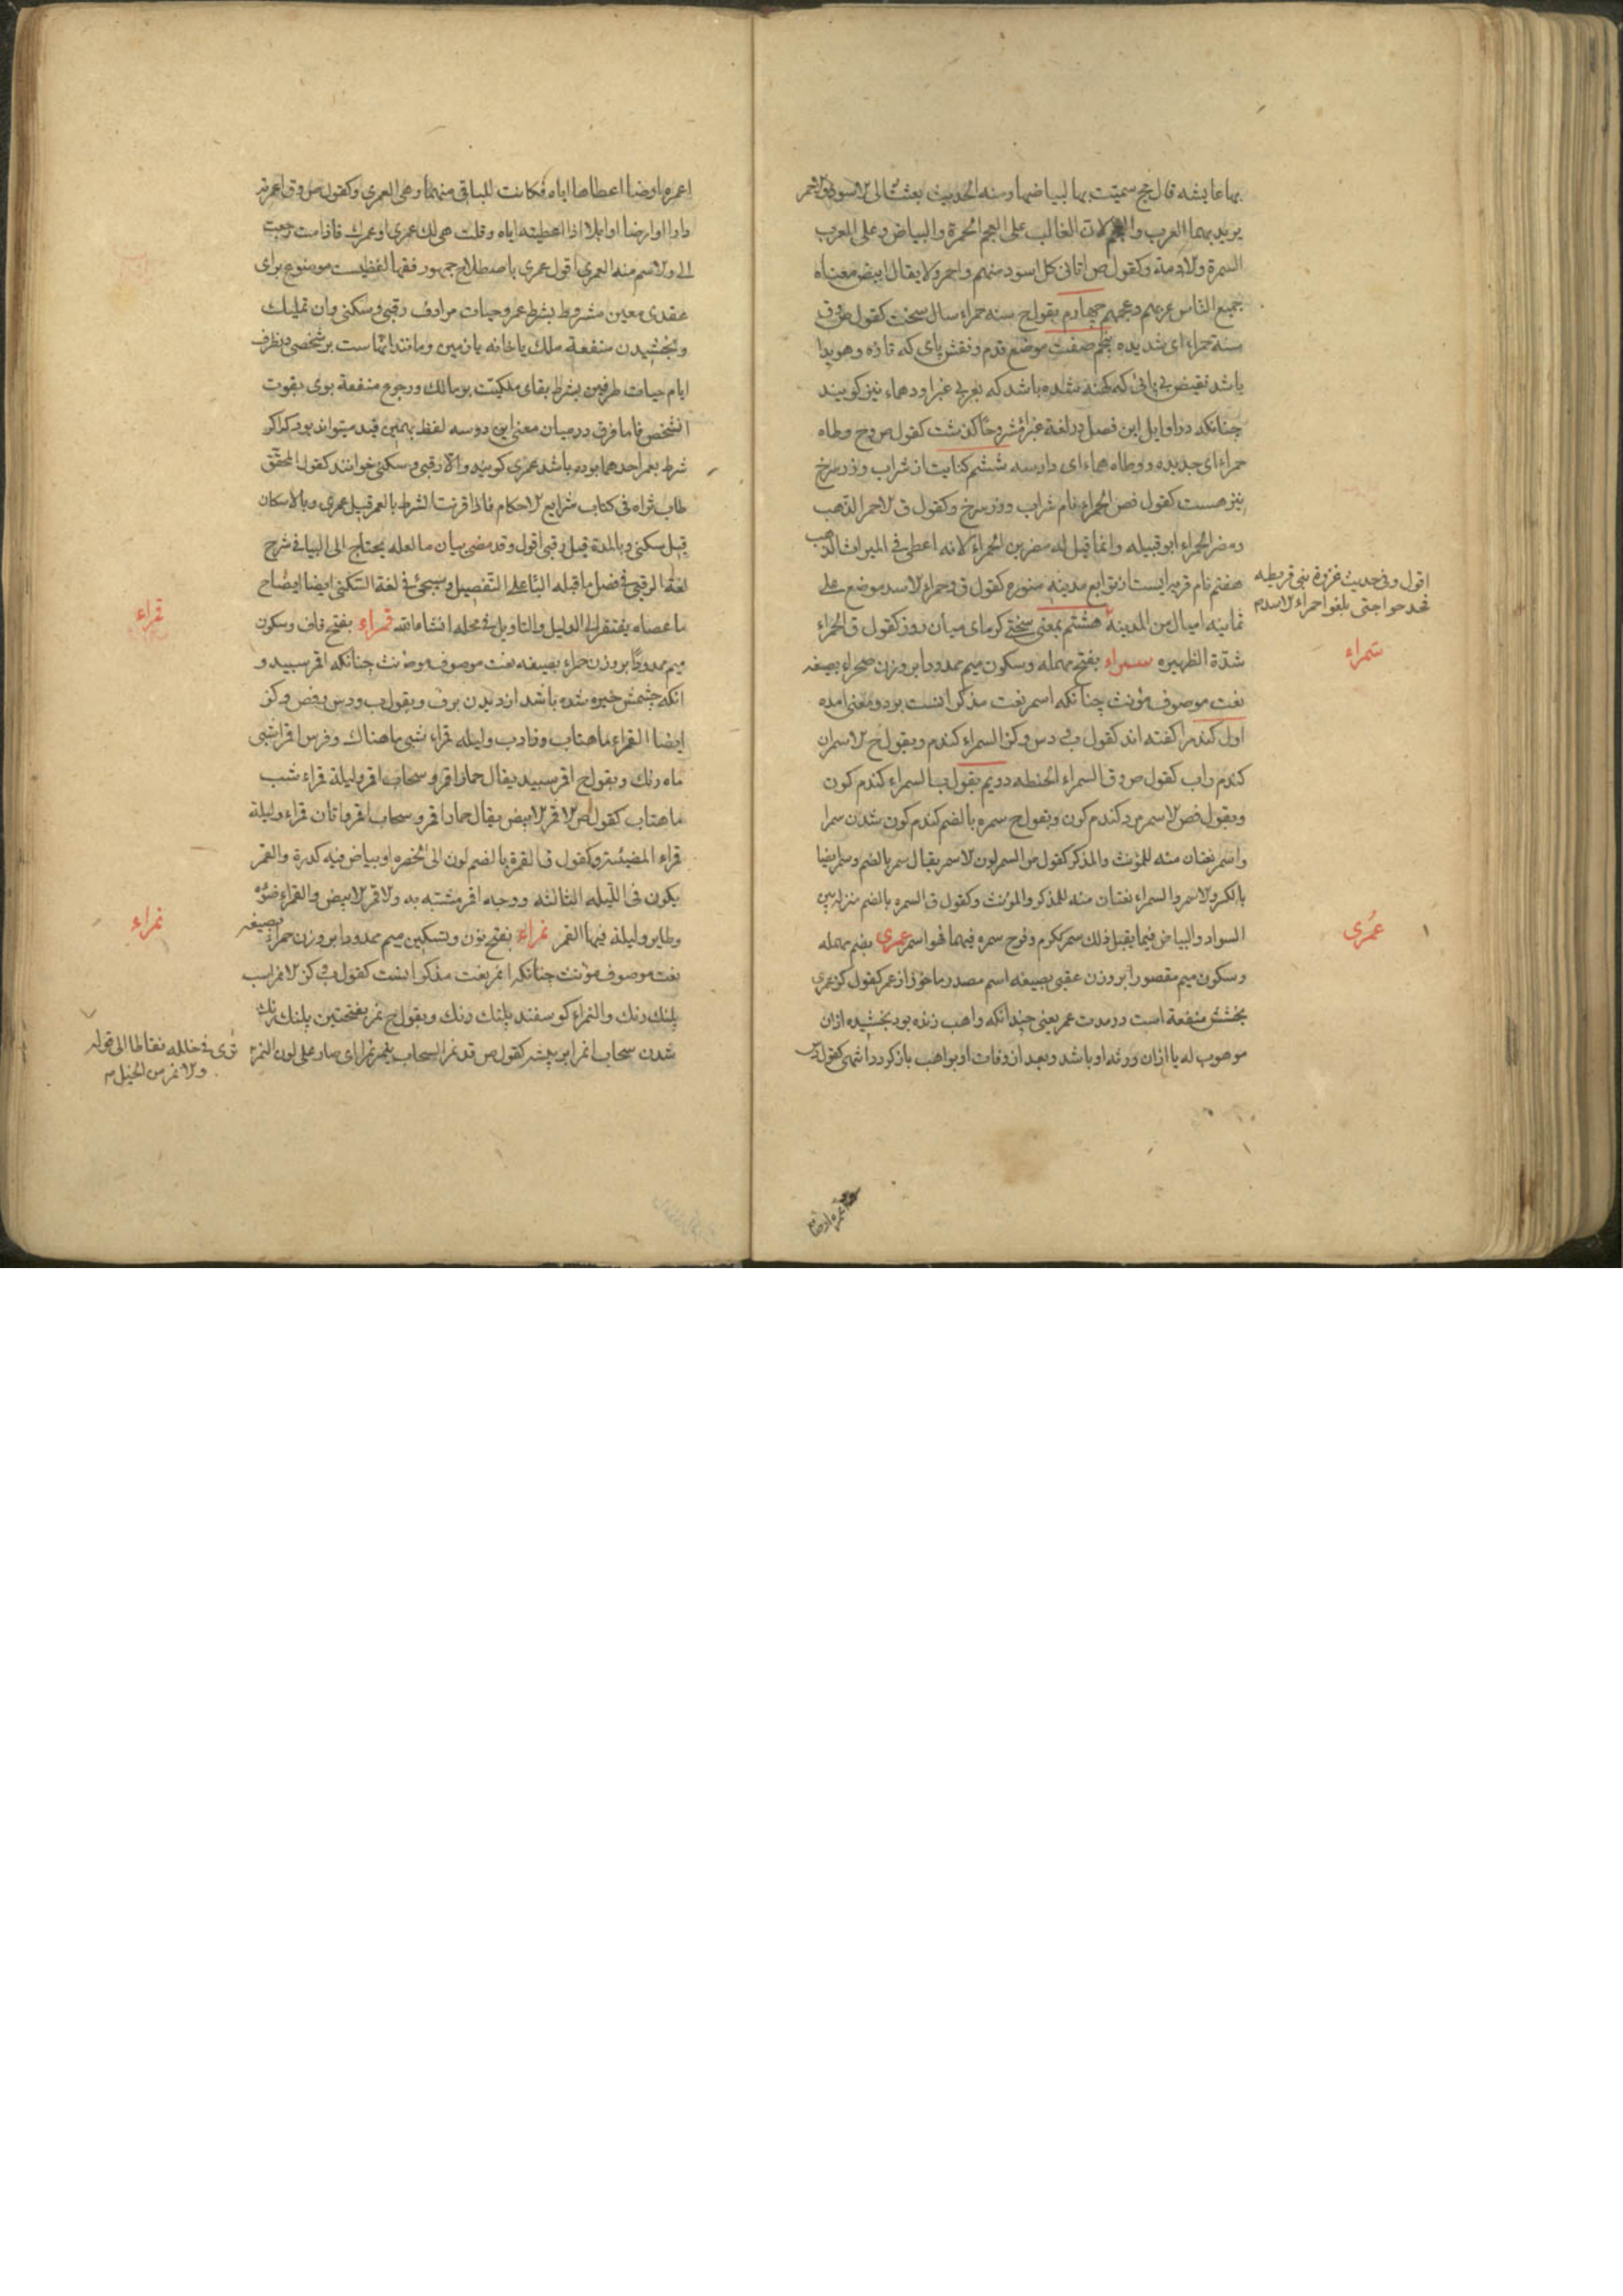 بها عایشه قال نج سمیت بها لبیاضها ومنه الحدیث بعثت الی الاسود والاحمر
یرید بهما العرب والعجم لان الغالب علی العجم الحمرة والبیاض وعلی العرب
السمرة والادمة وکقول ص اتانی کل اسود منهم واحمر ولا یقال ابیض معناه
جمیع الناس عربهم وعجمهم چهارم بقول ح سنه حمراء سال سخت کقول ص و ق
سنة حمراء ای شدیده پنجم صفت موضع قدم ونقش پای که تازه وهویدا
باشد نقیض پی پائی که کهنه شده باشد که بعربی غبرا ودهماء نیز کویند
چنانکه در اوایل این فصل در لغة غبرا مشروحا کذشت کقول ص و ح وطاه
حمراء ای جدیده ووطاه دهماء ای دارسه ششم کنایت از شراب وزر سرخ
نیز هست کقول فص الحمراء نام شراب وزر سرخ وکقول ق الاحمر الذهب
ومضر الحمراء ابو قبیله وانما قیل له مضر بن الحمراء لانه اعطی فی المیراث الذهب
هفتم نام قریه ایست از توابع مدینه منوره کقول ق وحمراء الاسد موضع علی
ثمانیه امیال من المدینة هشتم بمعنی سختی کرمای میان روز کقول ق الحمراء
شدّة الظهیره سمراء بفتح مهمله وسکون میم ممدودا بر وزن صحراء بصیغه
نعت موصوف مؤنث چنانکه اسمر نعت مذکر انست بدو معنی امده
اول کندم را کفته اند کقول ف و دس و کز السمراء کندم وبقول ح الاسمران
کندم واب کقول ص و ق السمراء الحنطه دویم بقول ب السمراء کندم کون
وبقول فص الاسمر مرد کندم کون وبقول ح سمره بالضم کندم کون شدن سمرا
واسمر نعتان منه للمؤنث والمذکر کقول ص السمر لون الاسمر یقال سمر بالضم وسمر ایضا
بالکسر والاسمر والسمراء نعتان منه للمذکر والمؤنث وکقول ق السمره بالضم منزلة بین
السواد والبیاض فیما یقبل ذلک سمر ککرم وفرح سمره فیهما فهو اسمر عمری بضم مهمله
وسکون میم مقصورا بر وزن عقبی بصیغه اسم مصدر ماخوذ از عمر کقول کز عمری
بخشش منفعة است در مدت عمر یعنی چندانکه واهب زنده بود بخشیده ازان
موهوب له یا ازان ورثه او باشد وبعد از وفات او بواهب باز کردد انتهی کقول
اقول وفی حدیث غزوة بنی قریظه
حتی بلغوا حمراء الاسد م
سمراء
عمری
اعمره ارضا اعطاها ایاه فکانت للباقی منهما وهی العمری وکقول ص و ق اعمرته
دارا او ارضا او ابلا اذا اعطیته ایاه وقلت هی لک عمری او عمرک فاذا مت رجعت
الی والاسم منه العمری اقول عمری باصطلاح جمهور فقها لفظیست موضوع برای
عقدی معین مشروط بشرط عمر وحیات مرادف رقبی وسکنی وان تملیک
وبخشیدن منفعة ملک یا خانه یا زمین ومانند اینهاست بر شخصی در ظرف
ایام حیات طرفین بشرط بقای ملکیت بر مالک ورجوع منفعة بوی بفوت
انشخص فاما فرق در میان معنی این دو سه لفظ بهمین قید میتواند بود که اکر
شرط بعمر احدهما بوده باشد عمری کویند والا رقبی وسکنی خوانند کقول المحقق
طاب ثراه فی کتاب شرایع الاحکام فاذا قرنت الشرط بالعمر قیل عمری وبالاسکان
قیل سکنی وبالمدة قیل رقبی اقول وقد مضی بیان ما لعله یحتاج الی البیان فی شرح
لغة الرقبی فی فصل ما قبله البا علی التفصیل وسیجئ فی لغة السکنی ایضا ایضاح
ما عساه یفتقر الی الدلیل والتاویل فی محله انشاءالله قمراء بفتح قاف وسکون
میم ممدودا بر وزن حمراء بصیغه نعت موصوف مؤنث چنانکه اقمر سپید و
انکه چشمش خیره شده باشد از دیدن برف وبقول ب و دس و فص و کز
ایضا القمراء ماهتاب وفا و ب ولیله قمراء شبی ماهناک وفرس اقمر اسبی
ماه رنک وبقول ح اقمر سپید یقال حمار اقمر وسحاب اقمر ولیلة قمراء شب
ماهتاب کقول ص الاقمر الابیض یقال حمار اقمر وسحاب اقمر واتان قمراء ولیلة
قمراء المضیئة وکقول ق القمرة بالضم لون الی الخضره او بیاض فیه کدرة والقمر
یکون فی اللیله الثالثه ووجه اقمر مشبه به والاقمر الابیض والقمراء ضوئه
وطایر ولیلة فیها القمر نمراء بفتح نون وتسکین میم ممدودا بر وزن حمراء بصیغه
نعت موصوف مؤنث چنانکه انمر نعت مذکر انست کقول ف و کز الانمر اسب
پلنک رنک والنمراء کوسفند پلنک رنک وبقول ح نمر بفتحتین پلنک رنک
شدن سحاب انمر ابر پیسه کقول ص قد نمر السحاب ینمر نمرا ای صار علی لون النمر
تری فی خلله نقاطا الی قوله
والانمر من الخیل م
قمراء
نمراء